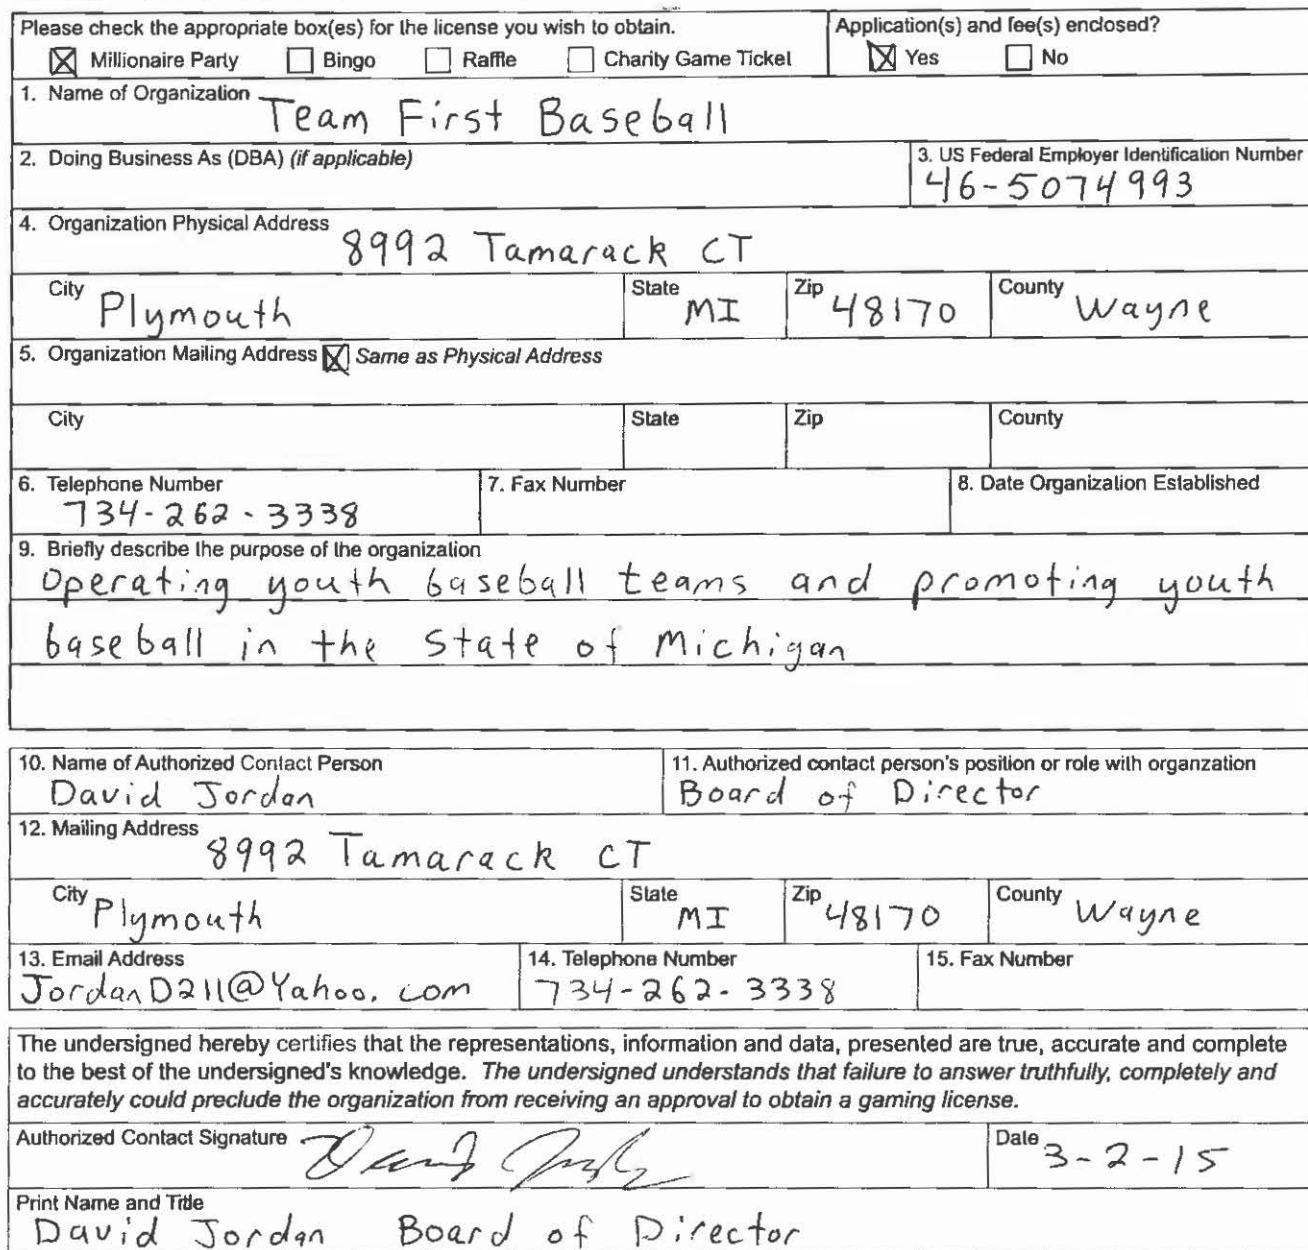 Please check the appropriate box(es) for the license you wish to obtain.
Application(s) and fee(s) enclosed?
Millionaire Party Bingo Raffle Charity Game Ticket
Yes No
1. Name of Organization Team First Baseball
2. Doing Business As (DBA) (if applicable)
3. US Federal Employer Identification Number
46-5074993
4. Organization Physical Address 8992 Tamarack CT
City Plymouth State MI Zip 48170 County Wayne
5. Organization Mailing Address Same as Physical Address
City State Zip County
6. Telephone Number 7. Fax Number 8. Date Organization Established
734-262-3338
9. Briefly describe the purpose of the organization
Operating youth baseball teams and promoting youth
baseball in the State of Michigan
10. Name of Authorized Contact Person 11. Authorized contact person's position or role with organzation
David Jordan Board of Director
12. Mailing Address 8992 Tamarack CT
City Plymouth State MI Zip 48170 County Wayne
13. Email Address 14. Telephone Number 15. Fax Number
JordanD211@Yahoo.com 734-262-3338
The undersigned hereby certifies that the representations, information and data, presented are true, accurate and complete
to the best of the undersigned's knowledge. The undersigned understands that failure to answer truthfully, completely and
accurately could preclude the organization from receiving an approval to obtain a gaming license.
Authorized Contact Signature Date 3-2-15
Print Name and Title
David Jordan Board of Director